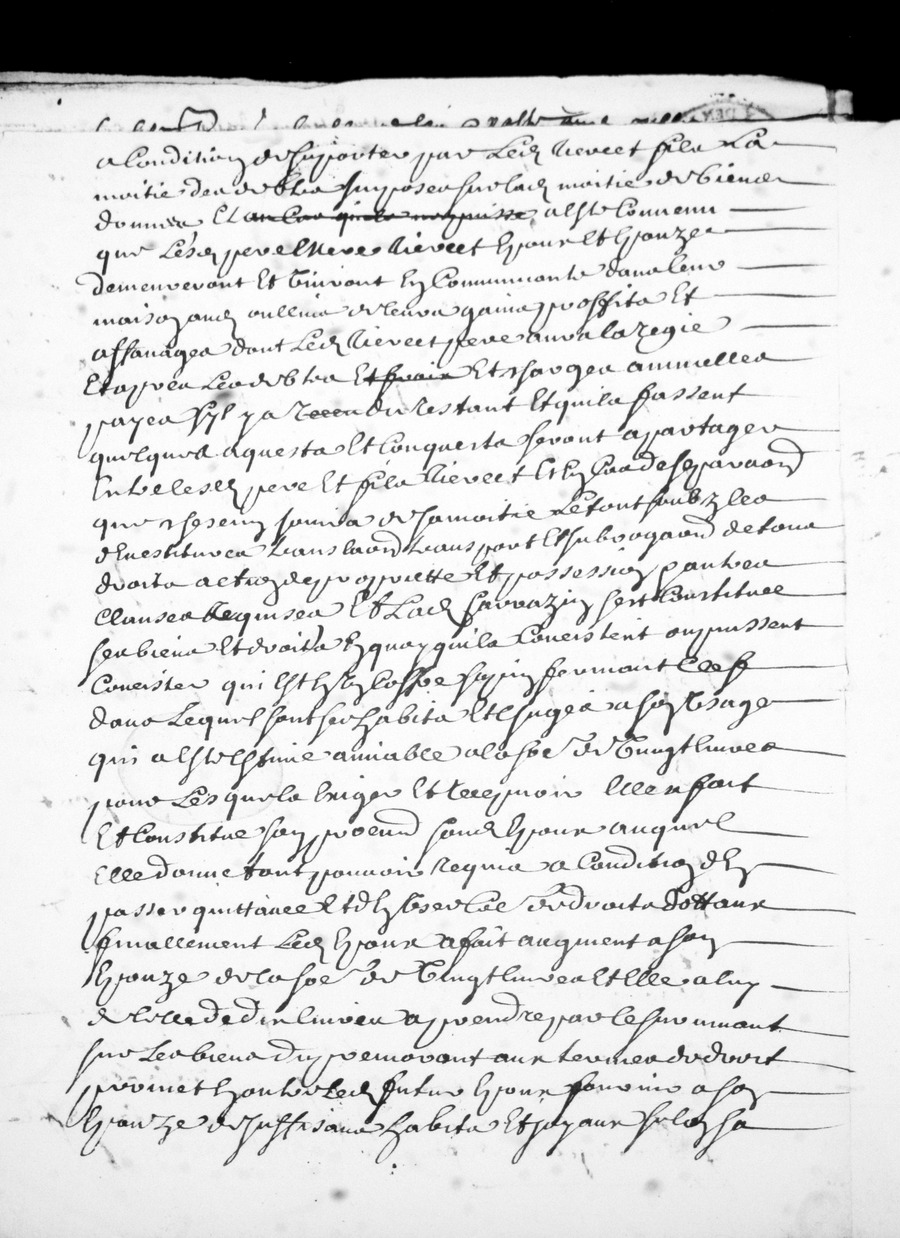 a Condition de suporter par Led Neveet fils La
moitie des debtes imposes sur lad moitie de biens
donnes Et au Cas qu'ils ne puisse a este Convenu
que Lesd pere Nevee Neveet Epoux Et Epouze
demeureront Et Vivront En Communaute dans leur
maison aud oullins de leurs gains proffits Et
affanages dont Led Neveet pere aura la regie
Et apres Les debtes Et frais Et charges annuelles
payes s'yl y a du restant Et quils fassent
quelques aquests Et Conquests seront a partager
Entre lesd pere Et fils Neveet Et En Cas de separaon
que chescung jouira de sa moitie Le tout soubz les
devestitures translaon transport Et subrogaon de tous
droits action de propriette Et possession Et autres
Clauses Requises Et Lad sarrazin sest Constituee
ses biens Et droits En quoy quils Consistent ou puissent
Consister qui Est En Ung Coffre sapin fermant Clef
dans Lequel sont ses habits Et linges a son Usage
qui a este Estime amiable a la soe de Vingt livres
pour Lesquels Exiger Et Recepvoir Elle a fait
Et Constitue son procureur sond Epoux auquel
Elle donne tout pouvoir Requis a Condition d'En
passer quittance Et d'En user Côe de droits dottaux
finallement Led Epoux a fait augment a son
Epouze de la soe de Vingt livres Et Elle a luy
de Celle de dix livres a prendre par le survivant
sur Les biens du premorant aux termes de droit
promet En outre Led futur Epoux fournir a son
Epouze de suffisans habits Et joyaux selon sa